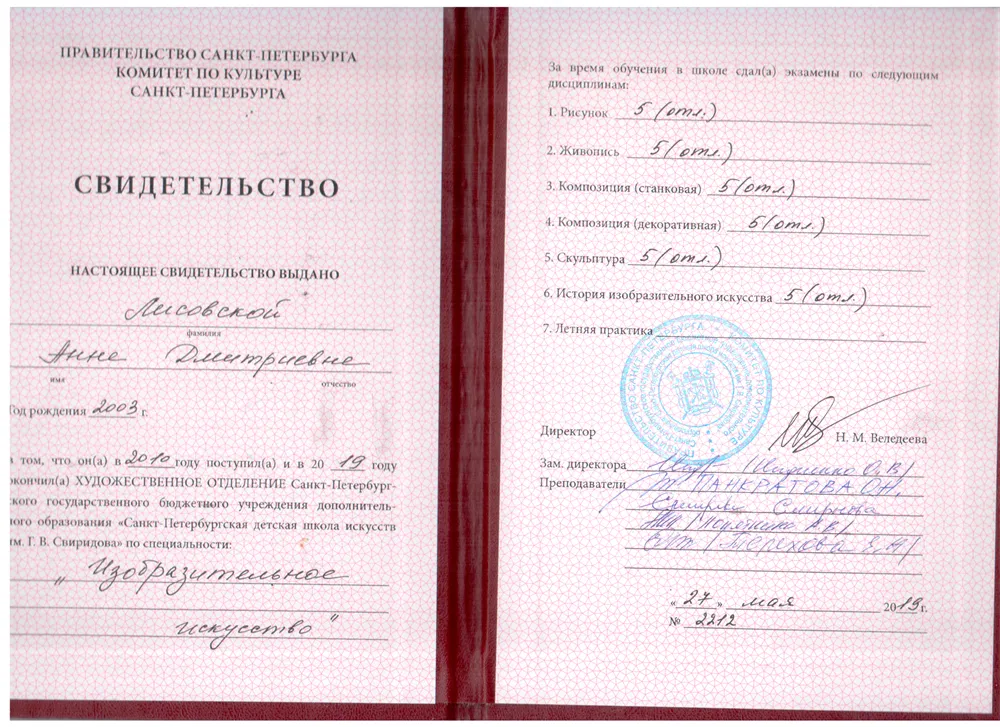 ПРАВИТЕЛЬСТВО САНКТ-ПЕТЕРБУРГА
КОМИТЕТ ПО КУЛЬТУРЕ
САНКТ-ПЕТЕРБУРГА
СВИДЕТЕЛЬСТВО
НАСТОЯЩЕЕ СВИДЕТЕЛЬСТВО ВЫДАНО
Лисовской
фамилия
Анне Дмитриевне
имя отчество
Год рождения 2003 г.
в том, что он(а) в 2010 году поступил(а) и в 20 19 году
окончил(а) ХУДОЖЕСТВЕННОЕ ОТДЕЛЕНИЕ Санкт-Петербург-
ского государственного бюджетного учреждения дополнитель-
ного образования «Санкт-Петербургская детская школа искусств
им. Г. В. Свиридова» по специальности:
„ Изобразительное
искусство "
За время обучения в школе сдал(а) экзамены по следующим
дисциплинам:
1. Рисунок 5 (отл.)
2. Живопись 5 (отл.)
3. Композиция (станковая) 5 (отл.)
4. Композиция (декоративная) 5 (отл.)
5. Скульптура 5 (отл.)
6. История изобразительного искусства 5 (отл.)
7. Летняя практика
Директор Н. М. Веледеева
Зам. директора
Преподаватели ПАНКРАТОВА О.Н.
Смирнова
Терехова Е.М/
« 27 » мая 2019 г.
№ 2212